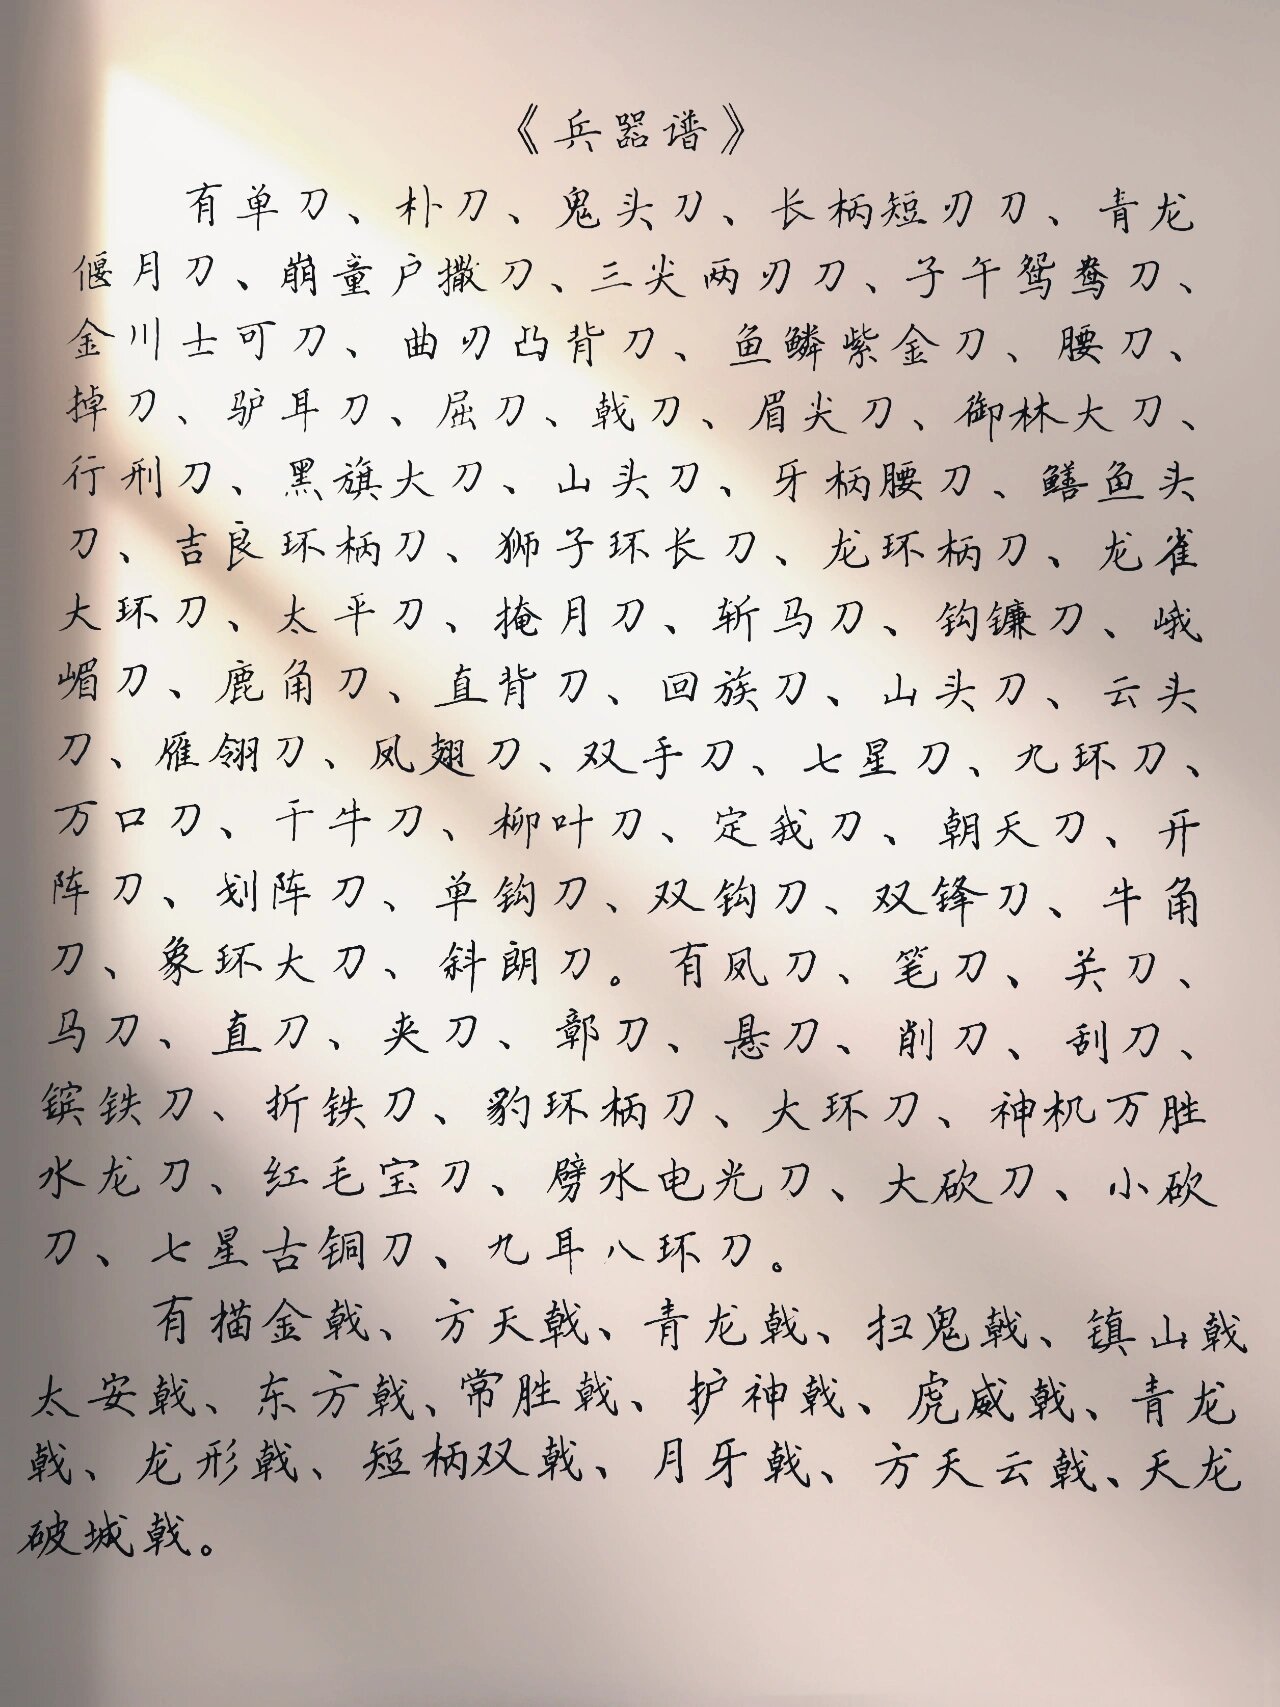 《兵器谱》
有单刀、朴刀、鬼头刀、长柄短刃刀、青龙
偃月刀、崩童户撒刀、三尖两刃刀、子午鸳鸯刀、
金川士可刀、曲刃凸背刀、鱼鳞紫金刀、腰刀、
掉刀、驴耳刀、屈刀、戟刀、眉尖刀、御林大刀、
行刑刀、黑旗大刀、山头刀、牙柄腰刀、鳝鱼头
刀、吉良环柄刀、狮子环长刀、龙环柄刀、龙雀
大环刀、太平刀、掩月刀、斩马刀、钩镰刀、峨
嵋刀、鹿角刀、直背刀、回族刀、山头刀、云头
刀、雁翎刀、凤翅刀、双手刀、七星刀、九环刀、
万口刀、千牛刀、柳叶刀、定我刀、朝天刀、开
阵刀、划阵刀、单钩刀、双钩刀、双锋刀、牛角
刀、象环大刀、斜朗刀。有凤刀、笔刀、关刀、
马刀、直刀、夹刀、鄣刀、悬刀、削刀、刮刀、
镔铁刀、折铁刀、豹环柄刀、大环刀、神机万胜
水龙刀、红毛宝刀、劈水电光刀、大砍刀、小砍
刀、七星古铜刀、九耳八环刀。
有描金戟、方天戟、青龙戟、扫鬼戟、镇山戟
太安戟、东方戟、常胜戟、护神戟、虎威戟、青龙
戟、龙形戟、短柄双戟、月牙戟、方天云戟、天龙
破城戟。